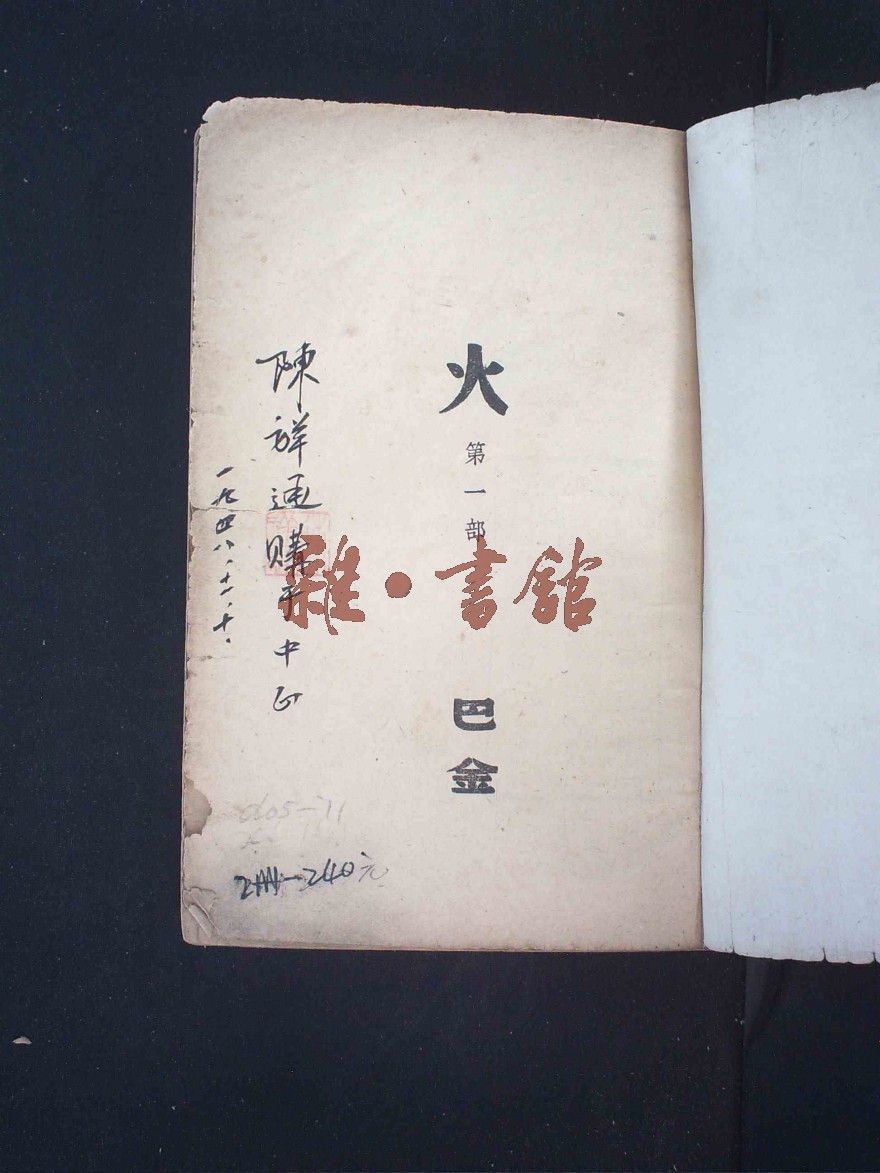 火
第一部
巴金
陳祥通購于中正
一九四八.十一.十.
雜·書館
240元